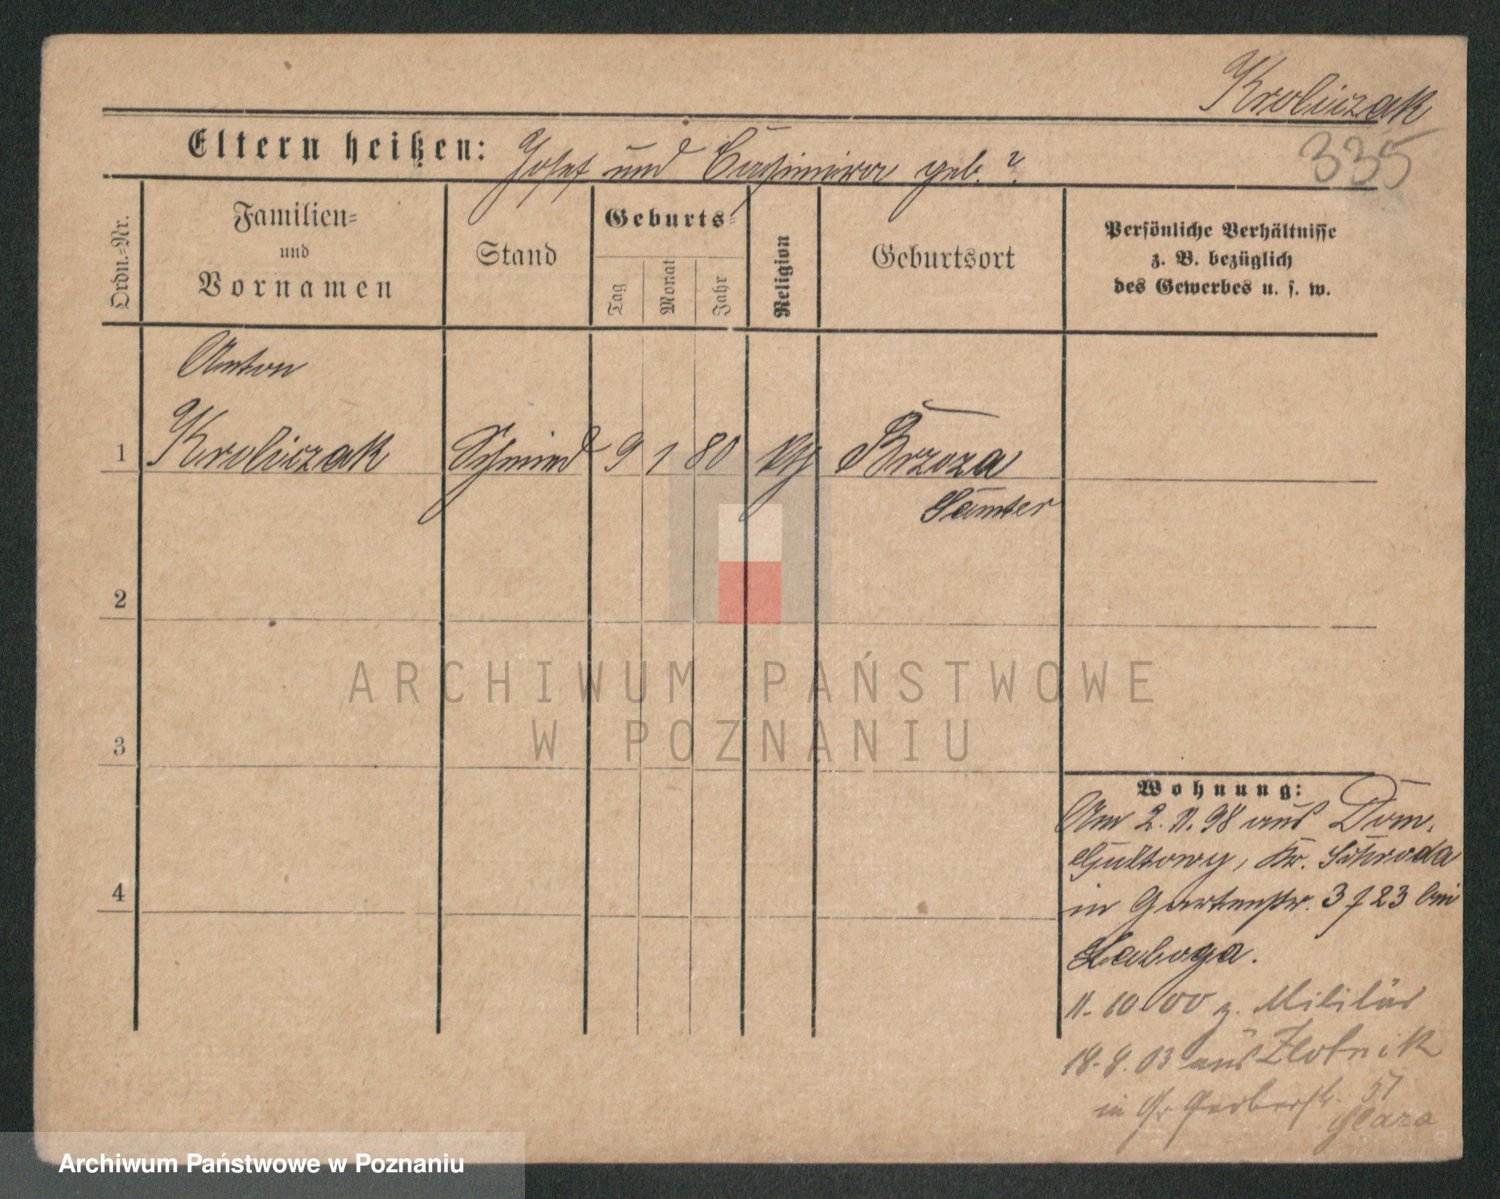 Kroliczak
335
Eltern heißen: Josef und Casimira geb. ?
Ordn.-Nr.
Familien-
und
Vornamen
Stand
Geburts-
Tag
Monat
Jahr
Religion
Geburtsort
Persönliche Verhältnisse
z. B. bezüglich
des Gewerbes u. s. w.
Anton
1 Kroliczak Schmied 9 1 80 kth Brzoza
Samter
2
3
4
ARCHIWUM PAŃSTWOWE
W POZNANIU
Wohnung:
Am 2. 11. 98 aus Dom.
Gultowy, Kr. Schroda
in Gartenstr. 3 f 23 bei
Laboga.
11. 10 00 z. Militär
18. 8. 03 aus Zlotnik
in Gr. Gerberstr. 57
Archiwum Państwowe w Poznaniu